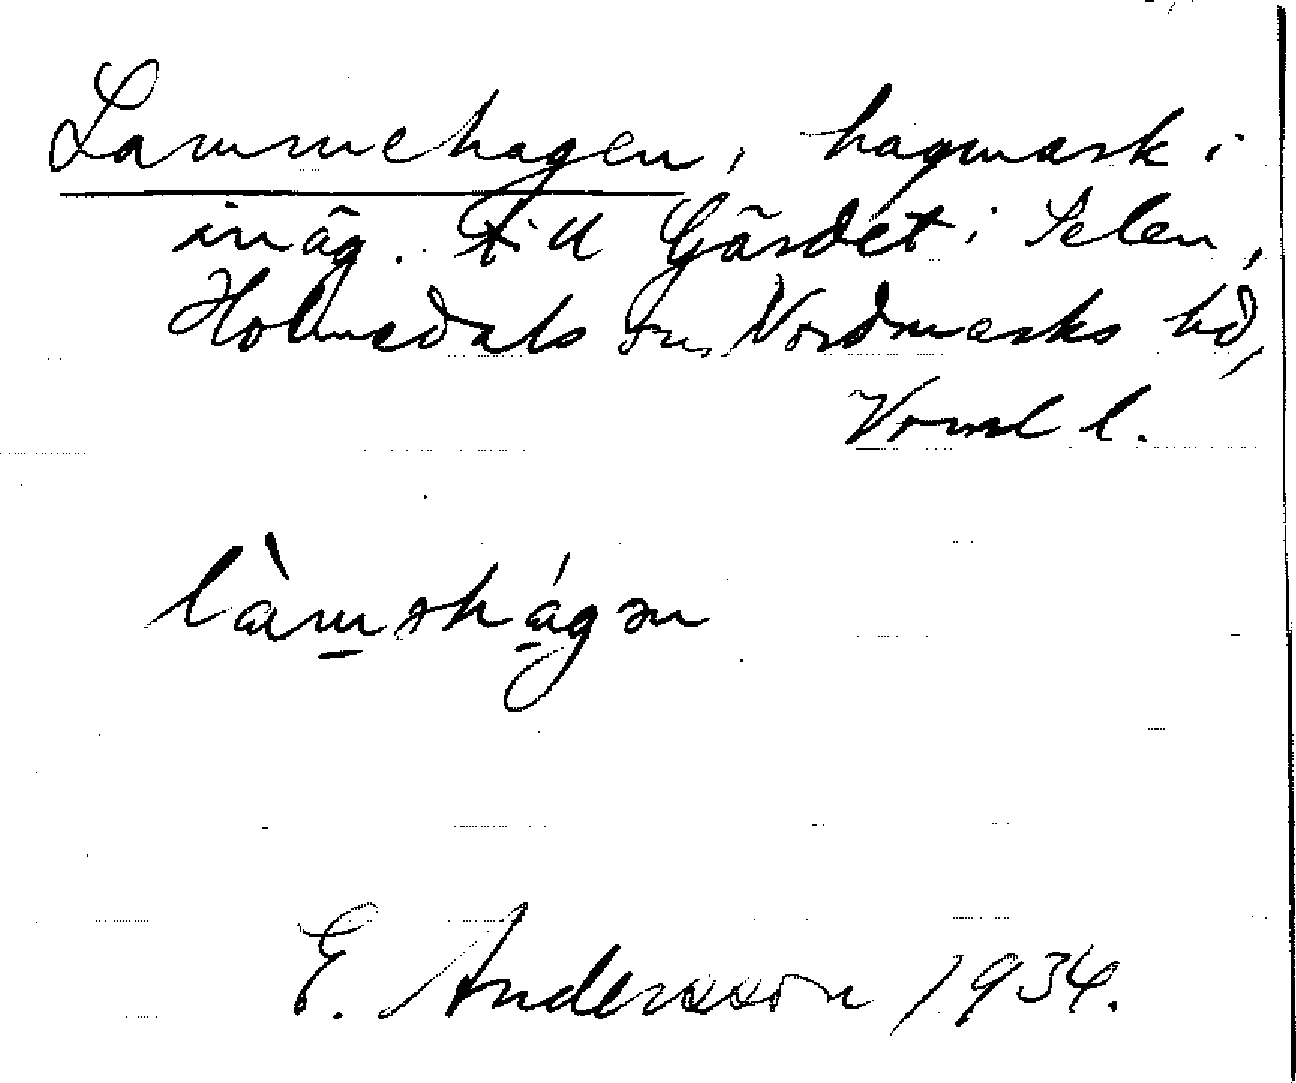 Lammehagen, hagmark i
inäg. till Gärdet i Selen,
Holmedals sn, Nordmarks hd,
Vrml l.
làm̲əhá̲gən
E. Andersson 1934.